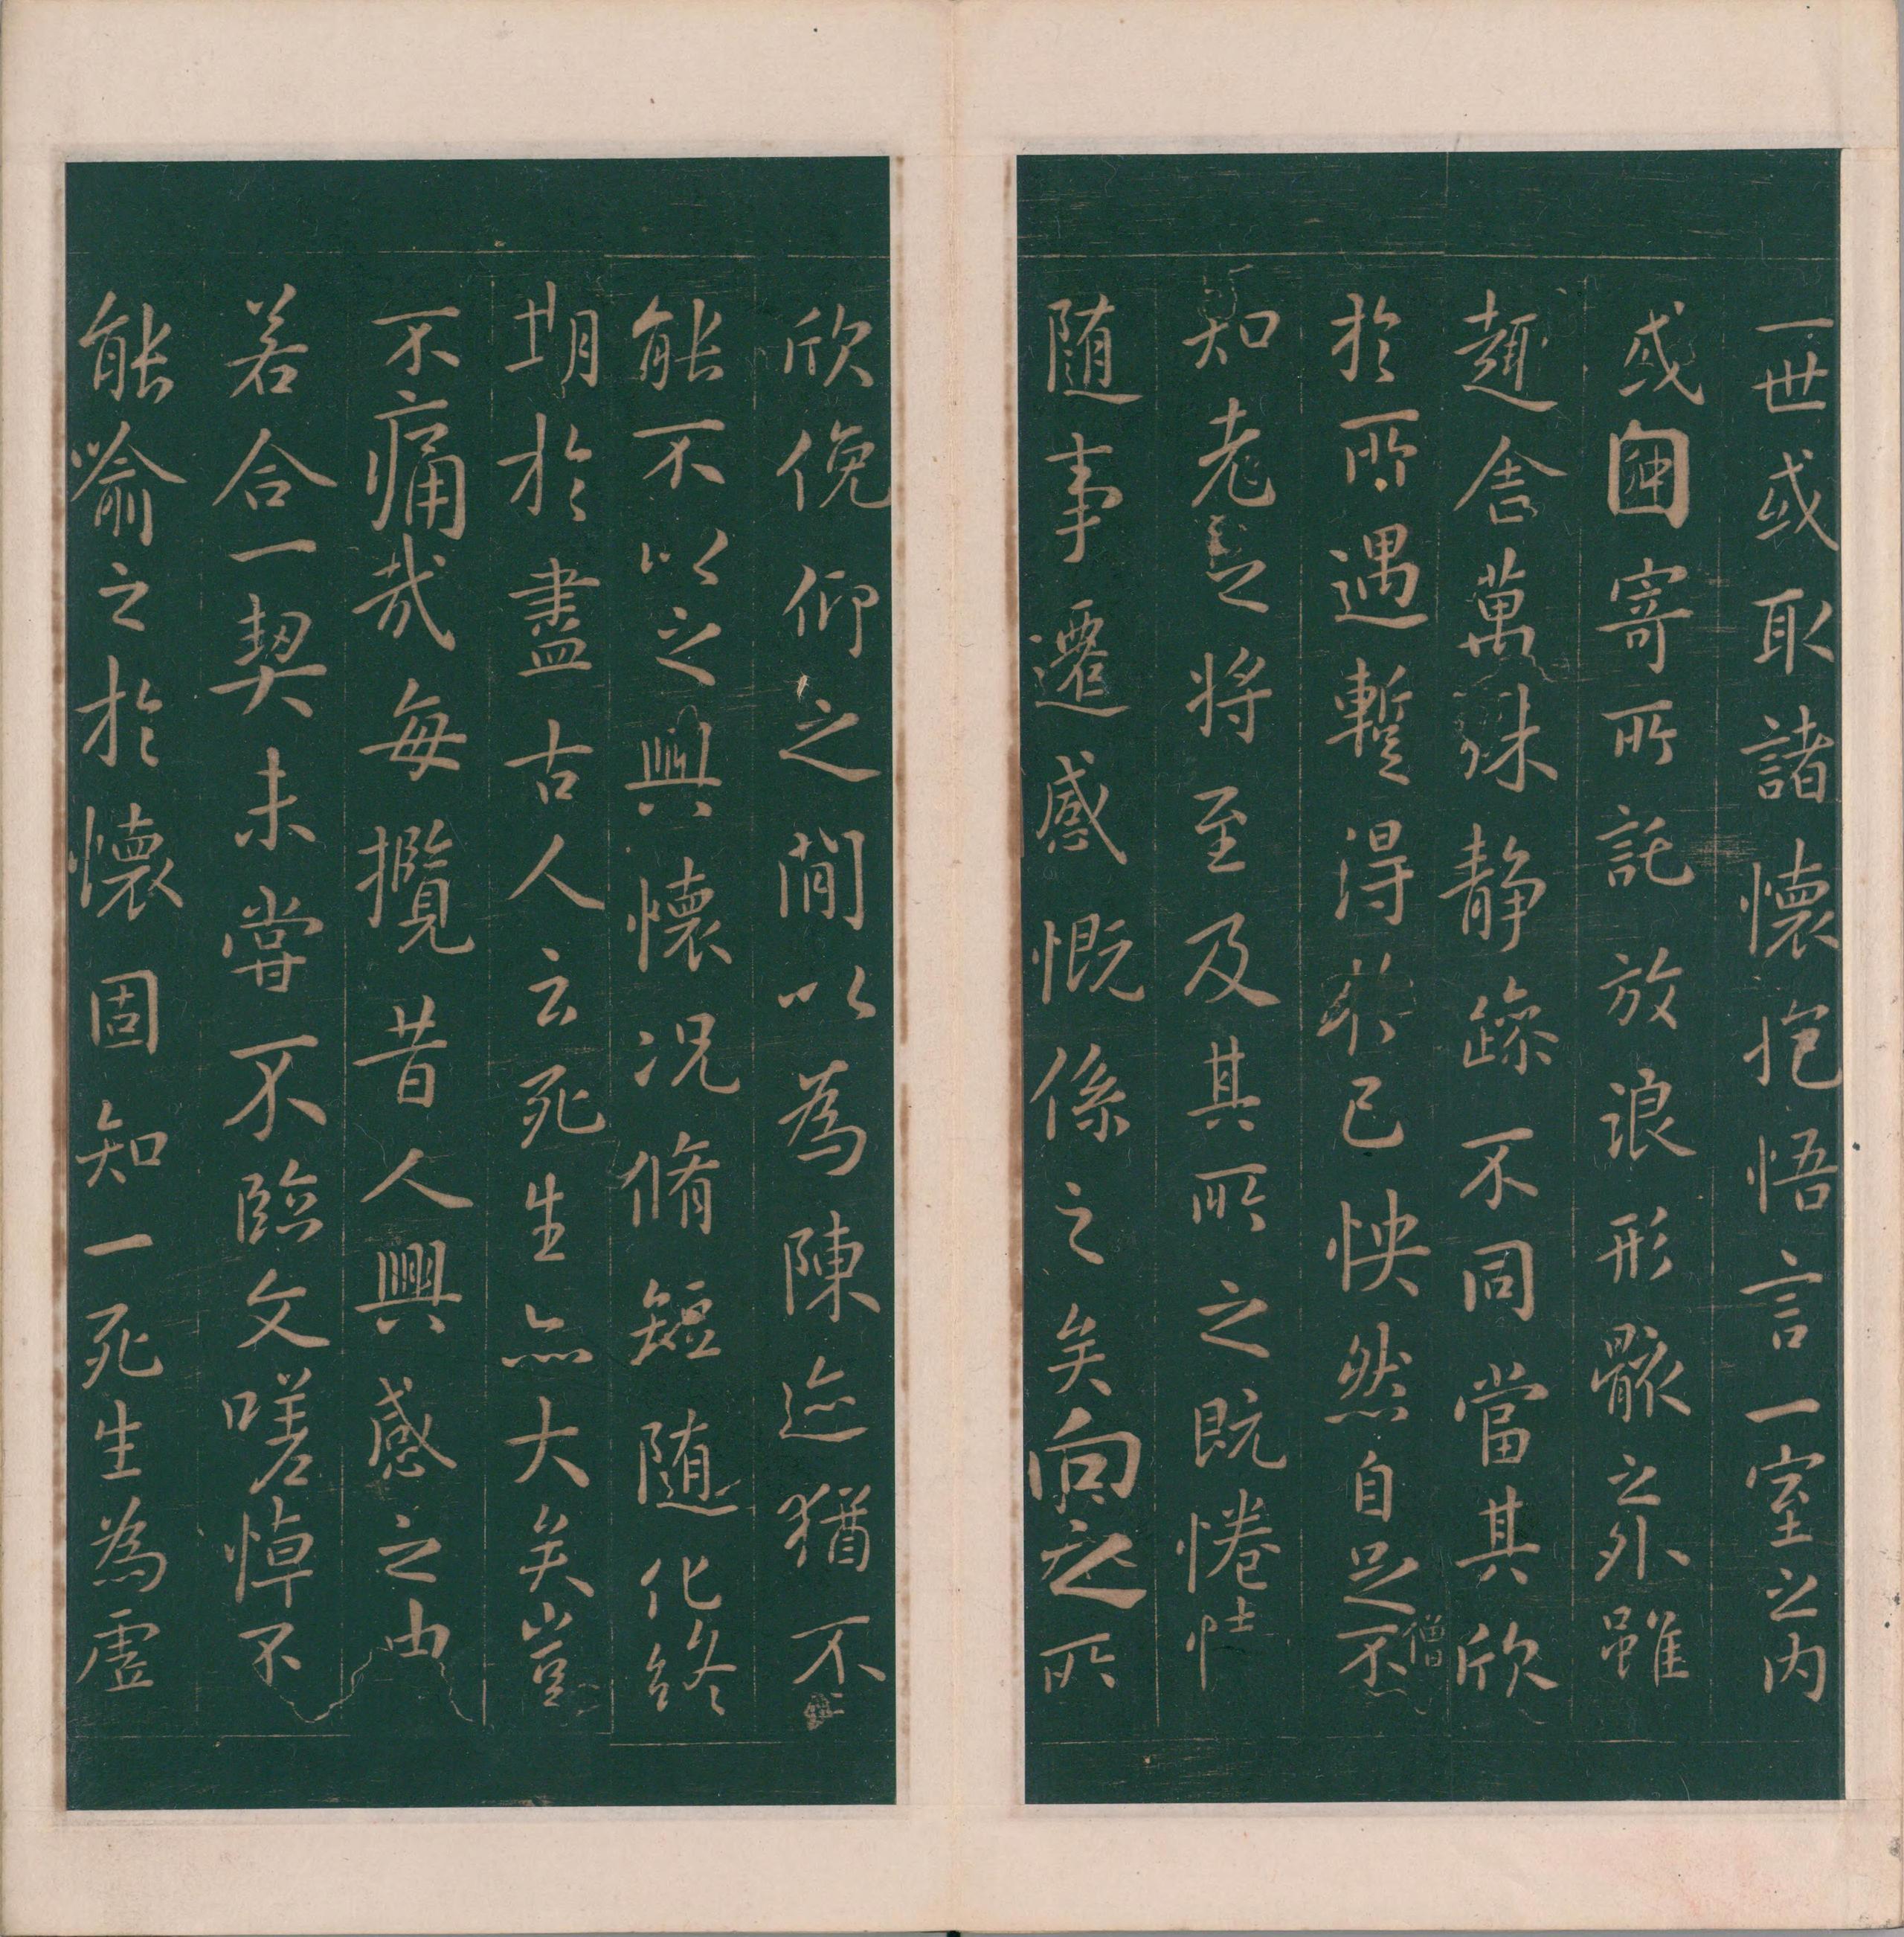 一世或取諸懷抱悟言一室之內
或因寄所託放浪形骸之外雖
趣舍萬殊靜躁不同當其欣
於所遇蹔得於己怏然自足不
僧
知老之將至及其所之既惓情
隨事遷感慨係之矣向之所
欣俛仰之閒以為陳迹猶不
能不以之興懷況脩短隨化終
期於盡古人云死生亦大矣豈
不痛哉每攬昔人興感之由
若合一契未嘗不臨文嗟悼不
能喻之於懷固知一死生為虛